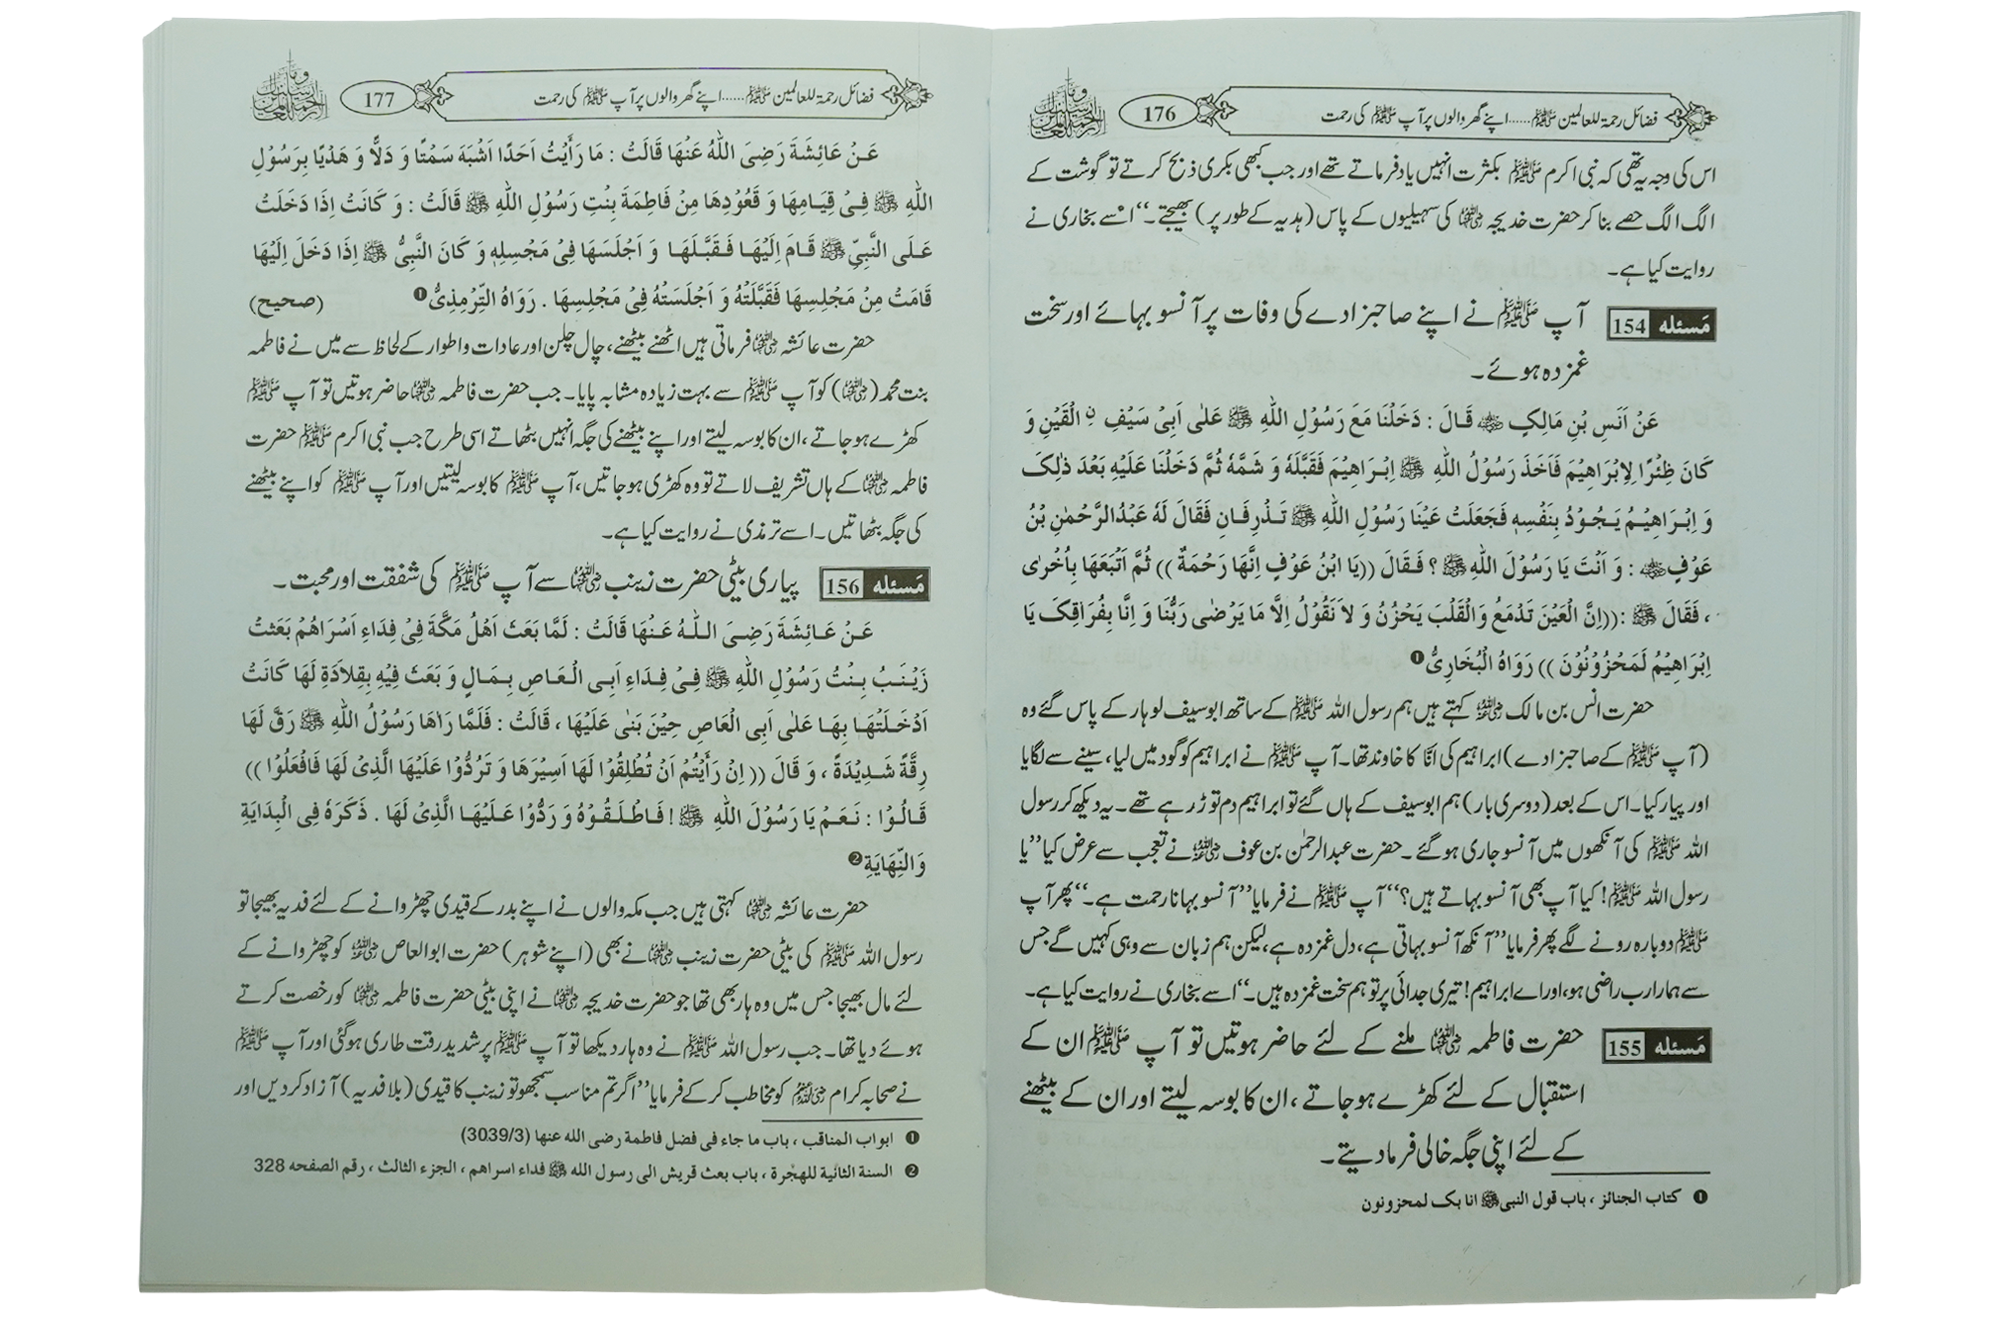 فضائل رحمۃ للعالمین ﷺ......اپنے گھر والوں پر آپ ﷺ کی رحمت
176
اس کی وجہ یہ تھی کہ نبی اکرم ﷺ بکثرت انہیں یاد فرماتے تھے اور جب کبھی بکری ذبح کرتے تو گوشت کے
الگ الگ حصے بنا کر حضرت خدیجہ رضی اللہ عنہا کی سہیلیوں کے پاس (ہدیہ کے طور پر) بھیجتے۔‘‘ اسے بخاری نے
روایت کیا ہے۔
مَسئله 154 آپ ﷺ نے اپنے صاحبزادے کی وفات پر آنسو بہائے اور سخت
غمزدہ ہوئے۔
عَنْ اَنَسِ بْنِ مَالِکٍ رضی اللہ عنہ قَالَ : دَخَلْنَا مَعَ رَسُوْلِ اللّٰهِ ﷺ عَلٰی اَبِیْ سَیْفِ نِ الْقَیْنِ وَ
کَانَ ظِئْرًا لِاِبْرَاهِیْمَ فَاَخَذَ رَسُوْلُ اللّٰهِ ﷺ اِبْرَاهِیْمَ فَقَبَّلَهٗ وَ شَمَّهٗ ثُمَّ دَخَلْنَا عَلَیْهِ بَعْدَ ذٰلِکَ
وَ اِبْرَاهِیْمُ یَجُوْدُ بِنَفْسِهٖ فَجَعَلَتْ عَیْنَا رَسُوْلِ اللّٰهِ ﷺ تَذْرِفَانِ فَقَالَ لَهٗ عَبْدُ الرَّحْمٰنِ بْنُ
عَوْفٍ رضی اللہ عنہ : وَ اَنْتَ یَا رَسُوْلَ اللّٰهِ ﷺ ؟ فَقَالَ ((یَا ابْنُ عَوْفٍ اِنَّهَا رَحْمَةٌ )) ثُمَّ اَتْبَعَهَا بِاُخْرٰی
، فَقَالَ ﷺ :((اِنَّ الْعَیْنَ تَدْمَعُ وَالْقَلْبَ یَحْزُنُ وَ لاَ نَقُوْلُ اِلَّا مَا یَرْضٰی رَبُّنَا وَ اِنَّا بِفُرَاقِکَ یَا
اِبْرَاهِیْمُ لَمَحْزُوْنُوْنَ )) رَوَاهُ الْبُخَارِیُّ ❶
حضرت انس بن مالک رضی اللہ عنہ کہتے ہیں ہم رسول اللہ ﷺ کے ساتھ ابو سیف لوہار کے پاس گئے وہ
(آپ ﷺ کے صاحبزادے) ابراہیم کی انّا کا خاوند تھا۔ آپ ﷺ نے ابراہیم کو گود میں لیا، سینے سے لگایا
اور پیار کیا۔ اس کے بعد (دوسری بار) ہم ابو سیف کے ہاں گئے تو ابراہیم دم توڑ رہے تھے۔ یہ دیکھ کر رسول
اللہ ﷺ کی آنکھوں میں آنسو جاری ہو گئے۔ حضرت عبدالرحمٰن بن عوف رضی اللہ عنہ نے تعجب سے عرض کیا ’’یا
رسول اللہ ﷺ! کیا آپ بھی آنسو بہاتے ہیں؟‘‘ آپ ﷺ نے فرمایا ’’آنسو بہانا رحمت ہے۔‘‘ پھر آپ
ﷺ دوبارہ رونے لگے پھر فرمایا ’’آنکھ آنسو بہاتی ہے، دل غمزدہ ہے، لیکن ہم زبان سے وہی کہیں گے جس
سے ہمارا رب راضی ہو، اور اے ابراہیم! تیری جدائی پر تو ہم سخت غمزدہ ہیں۔‘‘ اسے بخاری نے روایت کیا ہے۔
مَسئله 155 حضرت فاطمہ رضی اللہ عنہا ملنے کے لئے حاضر ہوتیں تو آپ ﷺ ان کے
استقبال کے لئے کھڑے ہو جاتے، ان کا بوسہ لیتے اور ان کے بیٹھنے
کے لئے اپنی جگہ خالی فرما دیتے۔
❶ کتاب الجنائز ، باب قول النبی ﷺ انا بک لمحزونون
فضائل رحمۃ للعالمین ﷺ......اپنے گھر والوں پر آپ ﷺ کی رحمت
177
عَنْ عَائِشَةَ رَضِیَ اللّٰهُ عَنْهَا قَالَتْ : مَا رَأَیْتُ اَحَدًا اَشْبَهَ سَمْتًا وَ دَلًّا وَ هَدْیًا بِرَسُوْلِ
اللّٰهِ ﷺ فِیْ قِیَامِهَا وَ قَعُوْدِهَا مِنْ فَاطِمَةَ بِنْتِ رَسُوْلِ اللّٰهِ ﷺ قَالَتْ : وَ کَانَتْ اِذَا دَخَلَتْ
عَلَی النَّبِیِّ ﷺ قَامَ اِلَیْهَا فَقَبَّلَهَا وَ اَجْلَسَهَا فِیْ مَجْسِلِهٖ وَ کَانَ النَّبِیُّ ﷺ اِذَا دَخَلَ اِلَیْهَا
قَامَتْ مِنْ مَجْلِسِهَا فَقَبَّلَتْهُ وَ اَجْلَسَتْهُ فِیْ مَجْلِسِهَا . رَوَاهُ التِّرْمِذِیُّ ❶ (صحیح)
حضرت عائشہ رضی اللہ عنہا فرماتی ہیں اٹھنے بیٹھنے، چال چلن اور عادات و اطوار کے لحاظ سے میں نے فاطمہ
بنت محمد (رضی اللہ عنہا) کو آپ ﷺ سے بہت زیادہ مشابہ پایا۔ جب حضرت فاطمہ رضی اللہ عنہا حاضر ہوتیں تو آپ ﷺ
کھڑے ہو جاتے، ان کا بوسہ لیتے اور اپنے بیٹھنے کی جگہ انہیں بٹھاتے اسی طرح جب نبی اکرم ﷺ حضرت
فاطمہ رضی اللہ عنہا کے ہاں تشریف لاتے تو وہ کھڑی ہو جاتیں، آپ ﷺ کا بوسہ لیتیں اور آپ ﷺ کو اپنے بیٹھنے
کی جگہ بٹھاتیں۔ اسے ترمذی نے روایت کیا ہے۔
مَسئله 156 پیاری بیٹی حضرت زینب رضی اللہ عنہا سے آپ ﷺ کی شفقت اور محبت۔
عَنْ عَائِشَةَ رَضِیَ اللّٰهُ عَنْهَا قَالَتْ : لَمَّا بَعَثَ اَهْلُ مَکَّةَ فِیْ فِدَاءِ اَسْرَاهُمْ بَعَثَتْ
زَیْنَبُ بِنْتُ رَسُوْلِ اللّٰهِ ﷺ فِیْ فِدَاءِ اَبِی الْعَاصِ بِمَالٍ وَ بَعَثَ فِیْهِ بِقِلاَدَةٍ لَهَا کَانَتْ
اَدْخَلَتْهَا بِهَا عَلٰی اَبِی الْعَاصِ حِیْنَ بَنٰی عَلَیْهَا ، قَالَتْ : فَلَمَّا رَاٰهَا رَسُوْلُ اللّٰهِ ﷺ رَقَّ لَهَا
رِقَّةً شَدِیْدَةً ، وَ قَالَ (( اِنْ رَأَیْتُمْ اَنْ تُطْلِقُوْا لَهَا اَسِیْرَهَا وَ تَرُدُّوْا عَلَیْهَا الَّذِیْ لَهَا فَافْعَلُوْا ))
قَالُوْا : نَعَمْ یَا رَسُوْلَ اللّٰهِ ﷺ ! فَاطْلَقُوْهُ وَ رَدُّوْا عَلَیْهَا الَّذِیْ لَهَا . ذَکَرَهٗ فِی الْبِدَایَةِ
وَالنِّهَایَةِ ❷
حضرت عائشہ رضی اللہ عنہا کہتی ہیں جب مکہ والوں نے اپنے بدر کے قیدی چھڑوانے کے لئے فدیہ بھیجا تو
رسول اللہ ﷺ کی بیٹی حضرت زینب رضی اللہ عنہا نے بھی (اپنے شوہر) حضرت ابوالعاص رضی اللہ عنہ کو چھڑوانے کے
لئے مال بھیجا جس میں وہ ہار بھی تھا جو حضرت خدیجہ رضی اللہ عنہا نے اپنی بیٹی حضرت فاطمہ رضی اللہ عنہا کو رخصت کرتے
ہوئے دیا تھا۔ جب رسول اللہ ﷺ نے وہ ہار دیکھا تو آپ ﷺ پر شدید رقت طاری ہو گئی اور آپ ﷺ
نے صحابہ کرام رضی اللہ عنہم کو مخاطب کر کے فرمایا ’’اگر تم مناسب سمجھو تو زینب کا قیدی (بلا فدیہ) آزاد کر دیں اور
❶ ابواب المناقب ، باب ما جاء فی فضل فاطمة رضی الله عنها (3039/3)
❷ السنة الثانیة للهجرة ، باب بعث قریش الی رسول الله ﷺ فداء اسراهم ، الجزء الثالث ، رقم الصفحه 328